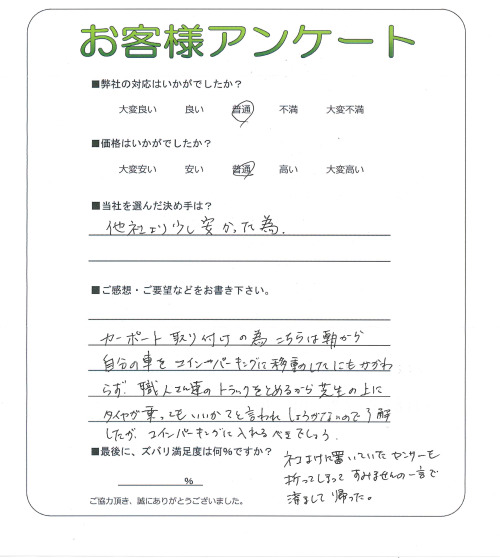 お客様アンケート
■弊社の対応はいかがでしたか？
大変良い 良い 普通 不満 大変不満
■価格はいかがでしたか？
大変安い 安い 普通 高い 大変高い
■当社を選んだ決め手は？
他社より少し安かった為.
■ご感想・ご要望などをお書き下さい。
カーポート取り付けの為こちらは朝から
自分の車をコインパーキングに移動したにもかかわ
らず、職人さん達のトラックをとめるから芝生の上に
タイヤが乗ってもいいかと言われしょうがないので了解
したが、コインパーキングに入れるべきでしょう.
■最後に、ズバリ満足度は何%ですか？
ネコよけに置いていたセンサーを
折ってしまってすみませんの一言で
済まして帰った。
%
ご協力頂き、誠にありがとうございました。